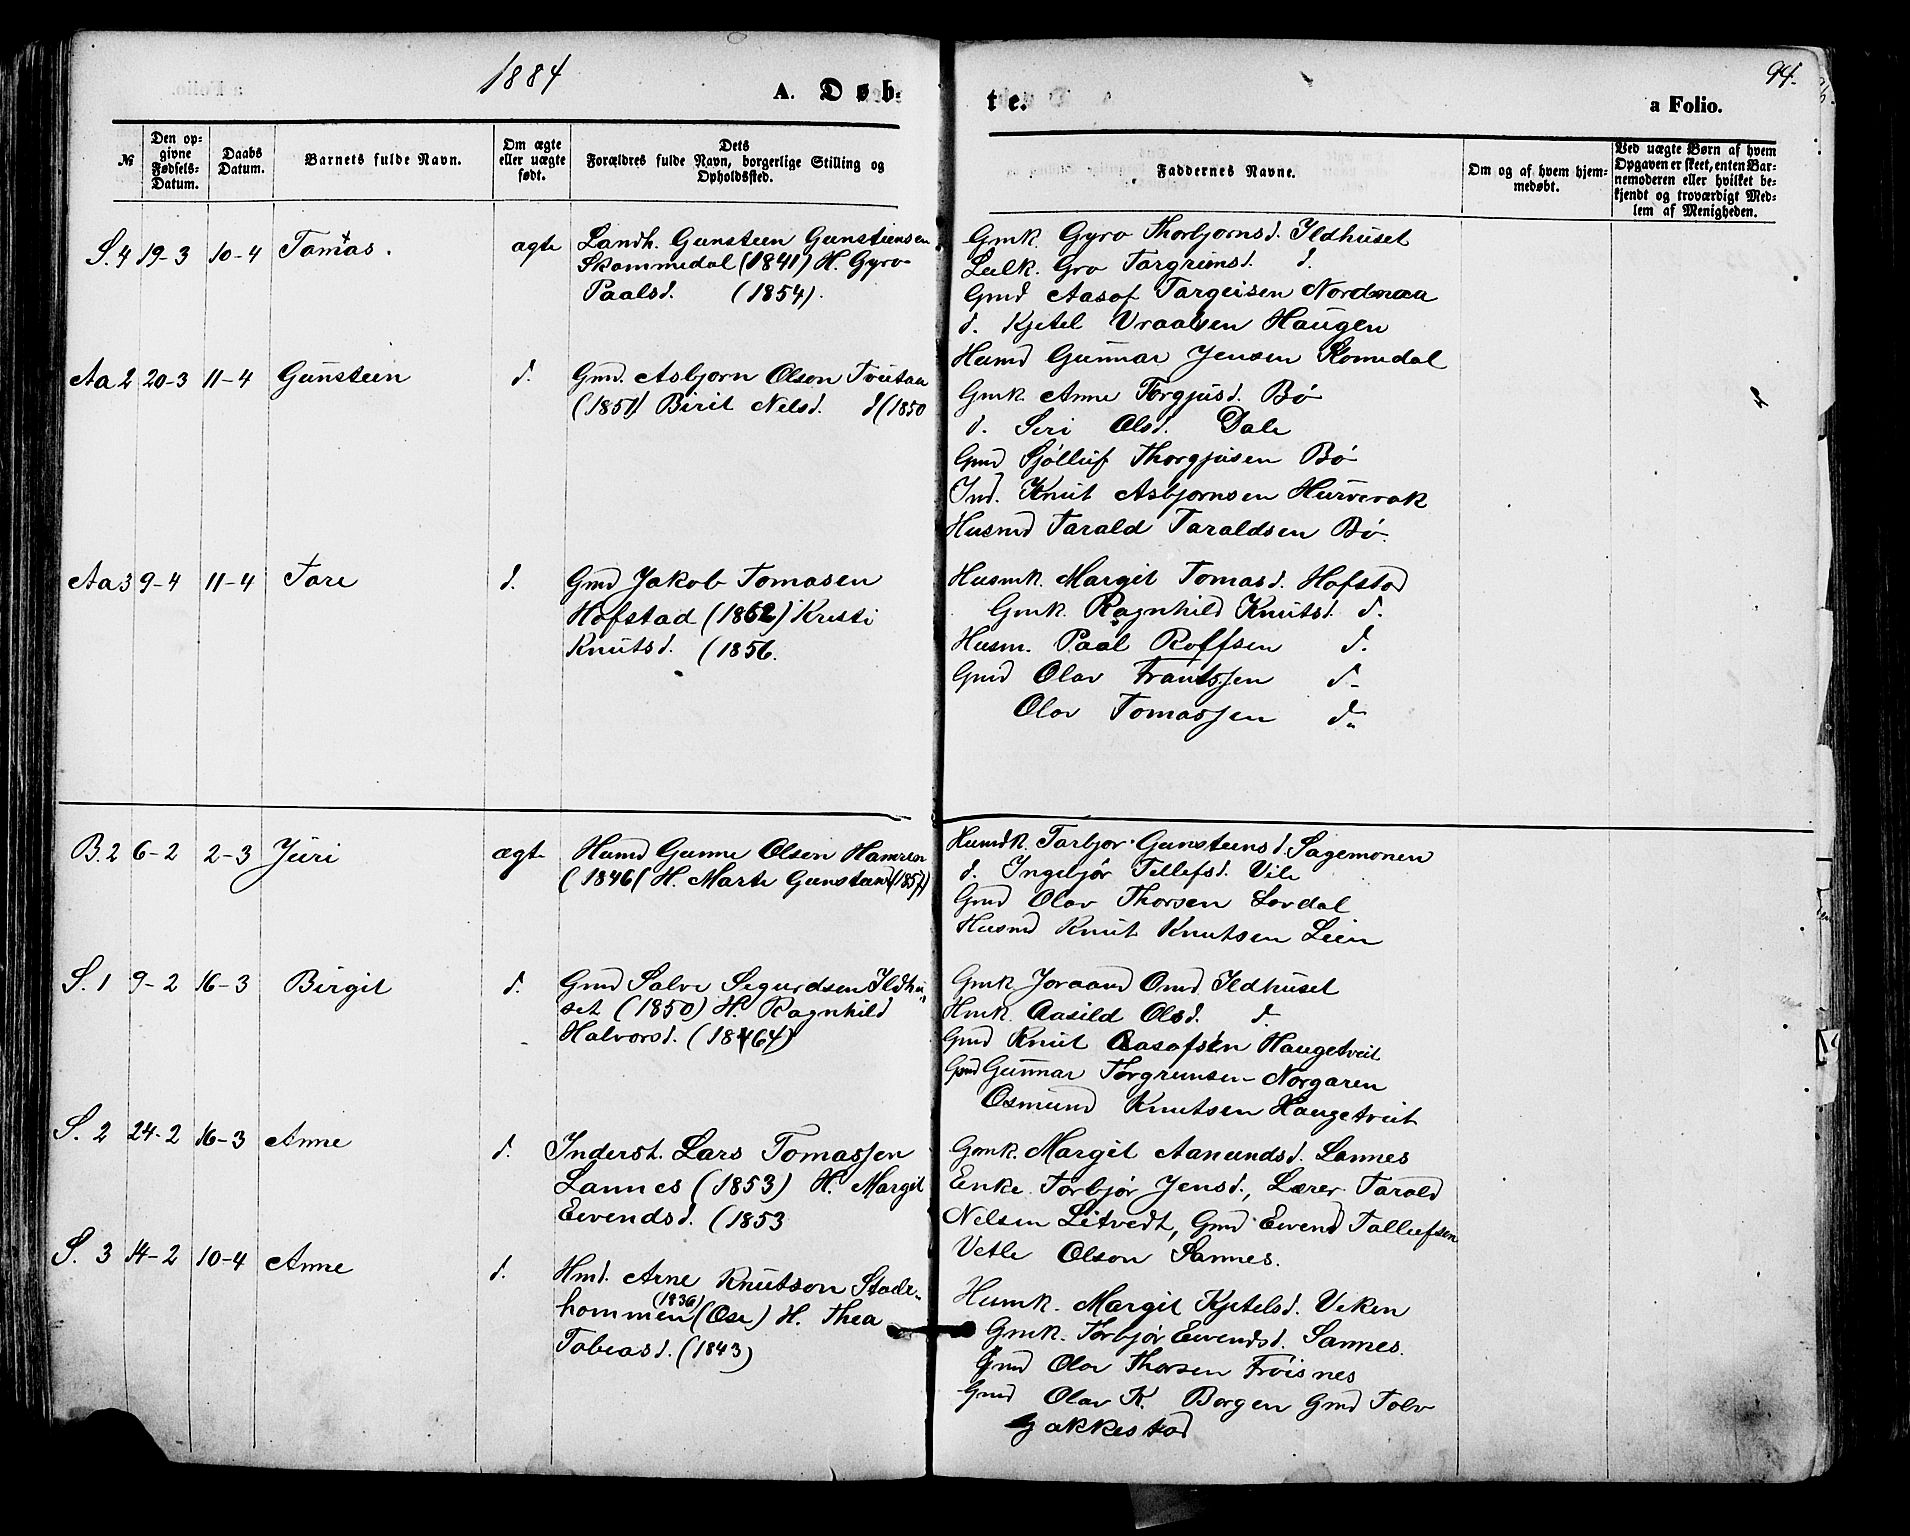 1884
A. Døb-
te.
94.
a Folio.
№
Den op-
givne
Fødsels-
Datum.
Daabs
Datum.
Barnets fulde Navn.
Om ægte
eller uægte
født.
Dets
Forældres fulde Navn, borgerlige Stilling og
Opholdssted.
Faddernes Navne.
Om og af hvem hjem-
medøbt.
Ved uægte Børn af hvem
Opgaven er skeet, enten Bar-
nemoderen eller hvilket be-
kjendt og troværdigt Med-
lem af Menigheden.
S. 4 19-3 10-4 Tomas. ægte Landh. Gunsteen Gunsteensen
Skommedal (1841) H. Gyro
Paalsd. (1854).
Gmk. Gyro Thorbjornsd. Ildhuset
Lulk. Gro Targrimsd. d.
Gmd Aasof Targeisen Nordnaa
d. Kjetel Vraalsen Haugen
Husmd Gunnar Jensen Romedal
Aa 2 20-3 11-4 Gunsteen d. Gmd. Asbjorn Olson Tveitaa
(1851) Birit Nelsd. d (1850
Gmk Anne Torgjusd. Bø
d. Seri Olsd. Dale
Gmd Sjølluf Thorgjusen Bø
Ind. Knut Asbjornsen Hurvevak
Husmd Tarald Taraldsen Bø.
Aa 3 9-4 11-4 Tore d. Gmd Jakob Tomasen
Hofstad (1862) Kristi
Knutsd. (1856.
Husmk. Margit Tomasd. Hofstad
Gmk. Ragnhild Knutsd. d.
Husm. Paal Roffsen d.
Gmd Olav Frantssen d-
Olav Tomassen d.
B. 2 6-2 2-3 Juri ægte Husmd Gunne Olsen Hamren
(1846( H. Marte Gunsteensd (1857)
Humdk. Tarbjor Gunsteensd. Sagemonen
d. Ingebjør Tellefsd. Vile
Gmd Olav Thorsen Lovdal
Husmd Knut Knutsen Leien
S. 1 9-2 16-3 Birgit d. Gmd Salve Segurdsen Ildhu-
set (1850) H. Ragnhild
Halvorsd. (18464)
Gmk Joraand Omd Ildhuset
Hmk. Aasild Olsd. d.
Gmd Knut Aasofsen Haugetveit
Gmd Gunnar Torgrimsen Norgaren
Osmund Knutsen Haugetveit
S. 2 24-2 16-3 Anne d. Inderst. Lars Tomassen
Lannes (1853) H. Margit
Eivendsd. (1853
Gmk. Margit Aanundsd. Lannes
Enke Torbjør Jensd., Lærer Tarald
Nelsen Litvedt, Gmd Eivend Tallefsen
Vetle Olson Sannes.
S. 3 14-2 10-4 Anne d. Hmd. Arne Knutson Stode-
(1836)
hommen (Ose) H. Thea
Tobeasd. (1843)
Humk. Margit Kjetelsd. Veken
Gmk. Torbjør Eivendsd. Sannes.
Gmd Olav Thorsen Frøisnes
Gmd Olav K. Borgen Gmd Tolv
Gakkestad